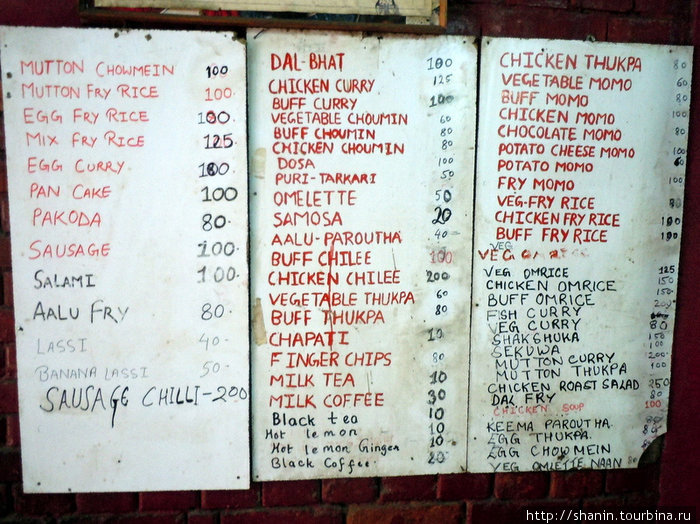 MUTTON CHOWMEIN 100
MUTTON FRY RICE 100.
EGG FRY RICE 100.
MIX FRY RICE 125
EGG CURRY 100.
PAN CAKE 100
PAKODA 80.
SAUSAGE 100
SALAMI 100.
AALU FRY 80.
LASSI 40.
BANANA LASSI 50.
SAUSAGE CHILLI-200
DAL-BHAT 100
CHICKEN CURRY 125
BUFF CURRY 100
VEGETABLE CHOUMIN 60
BUFF CHOUMIN 80
CHICKEN CHOUMIN 80
DOSA 100
PURI-TARKARI 50
OMELETTE 50
SAMOSA 20
AALU-PAROUTHA 40
BUFF CHILEE 100
CHICKEN CHILEE 200
VEGETABLE THUKPA 60
BUFF THUKPA 80
CHAPATI 10
FINGER CHIPS 80
MILK TEA 10
MILK COFFEE 30
Black tea 10
Hot lemon 10
Hot lemon Ginger 10
Black Coffee 20
CHICKEN THUKPA 80
VEGETABLE MOMO 60
BUFF MOMO 80
CHICKEN MOMO 100
CHOCOLATE MOMO 80
POTATO CHEESE MOMO 100
POTATO MOMO 60
FRY MOMO 100
VEG-FRY RICE 80
CHICKEN FRY RICE 100
BUFF FRY RICE 100
VEG
VEG
VEG OMRICE 125
CHICKEN OMRICE 150
BUFF OMRICE 150
FISH CURRY 200
VEG CURRY 80
SHAKSHUKA 150
SEKUWA 100
MUTTON CURRY 200
MUTTON THUKPA 100
CHICKEN ROAST SALAD 250
DAL FRY 80
CHICKEN SOUP 100
KEEMA PAROUTHA.
EGG THUKPA.
EGG CHOWMEIN
VEG OMLETTE NAAN 80
http://shanin.tourbina.ru